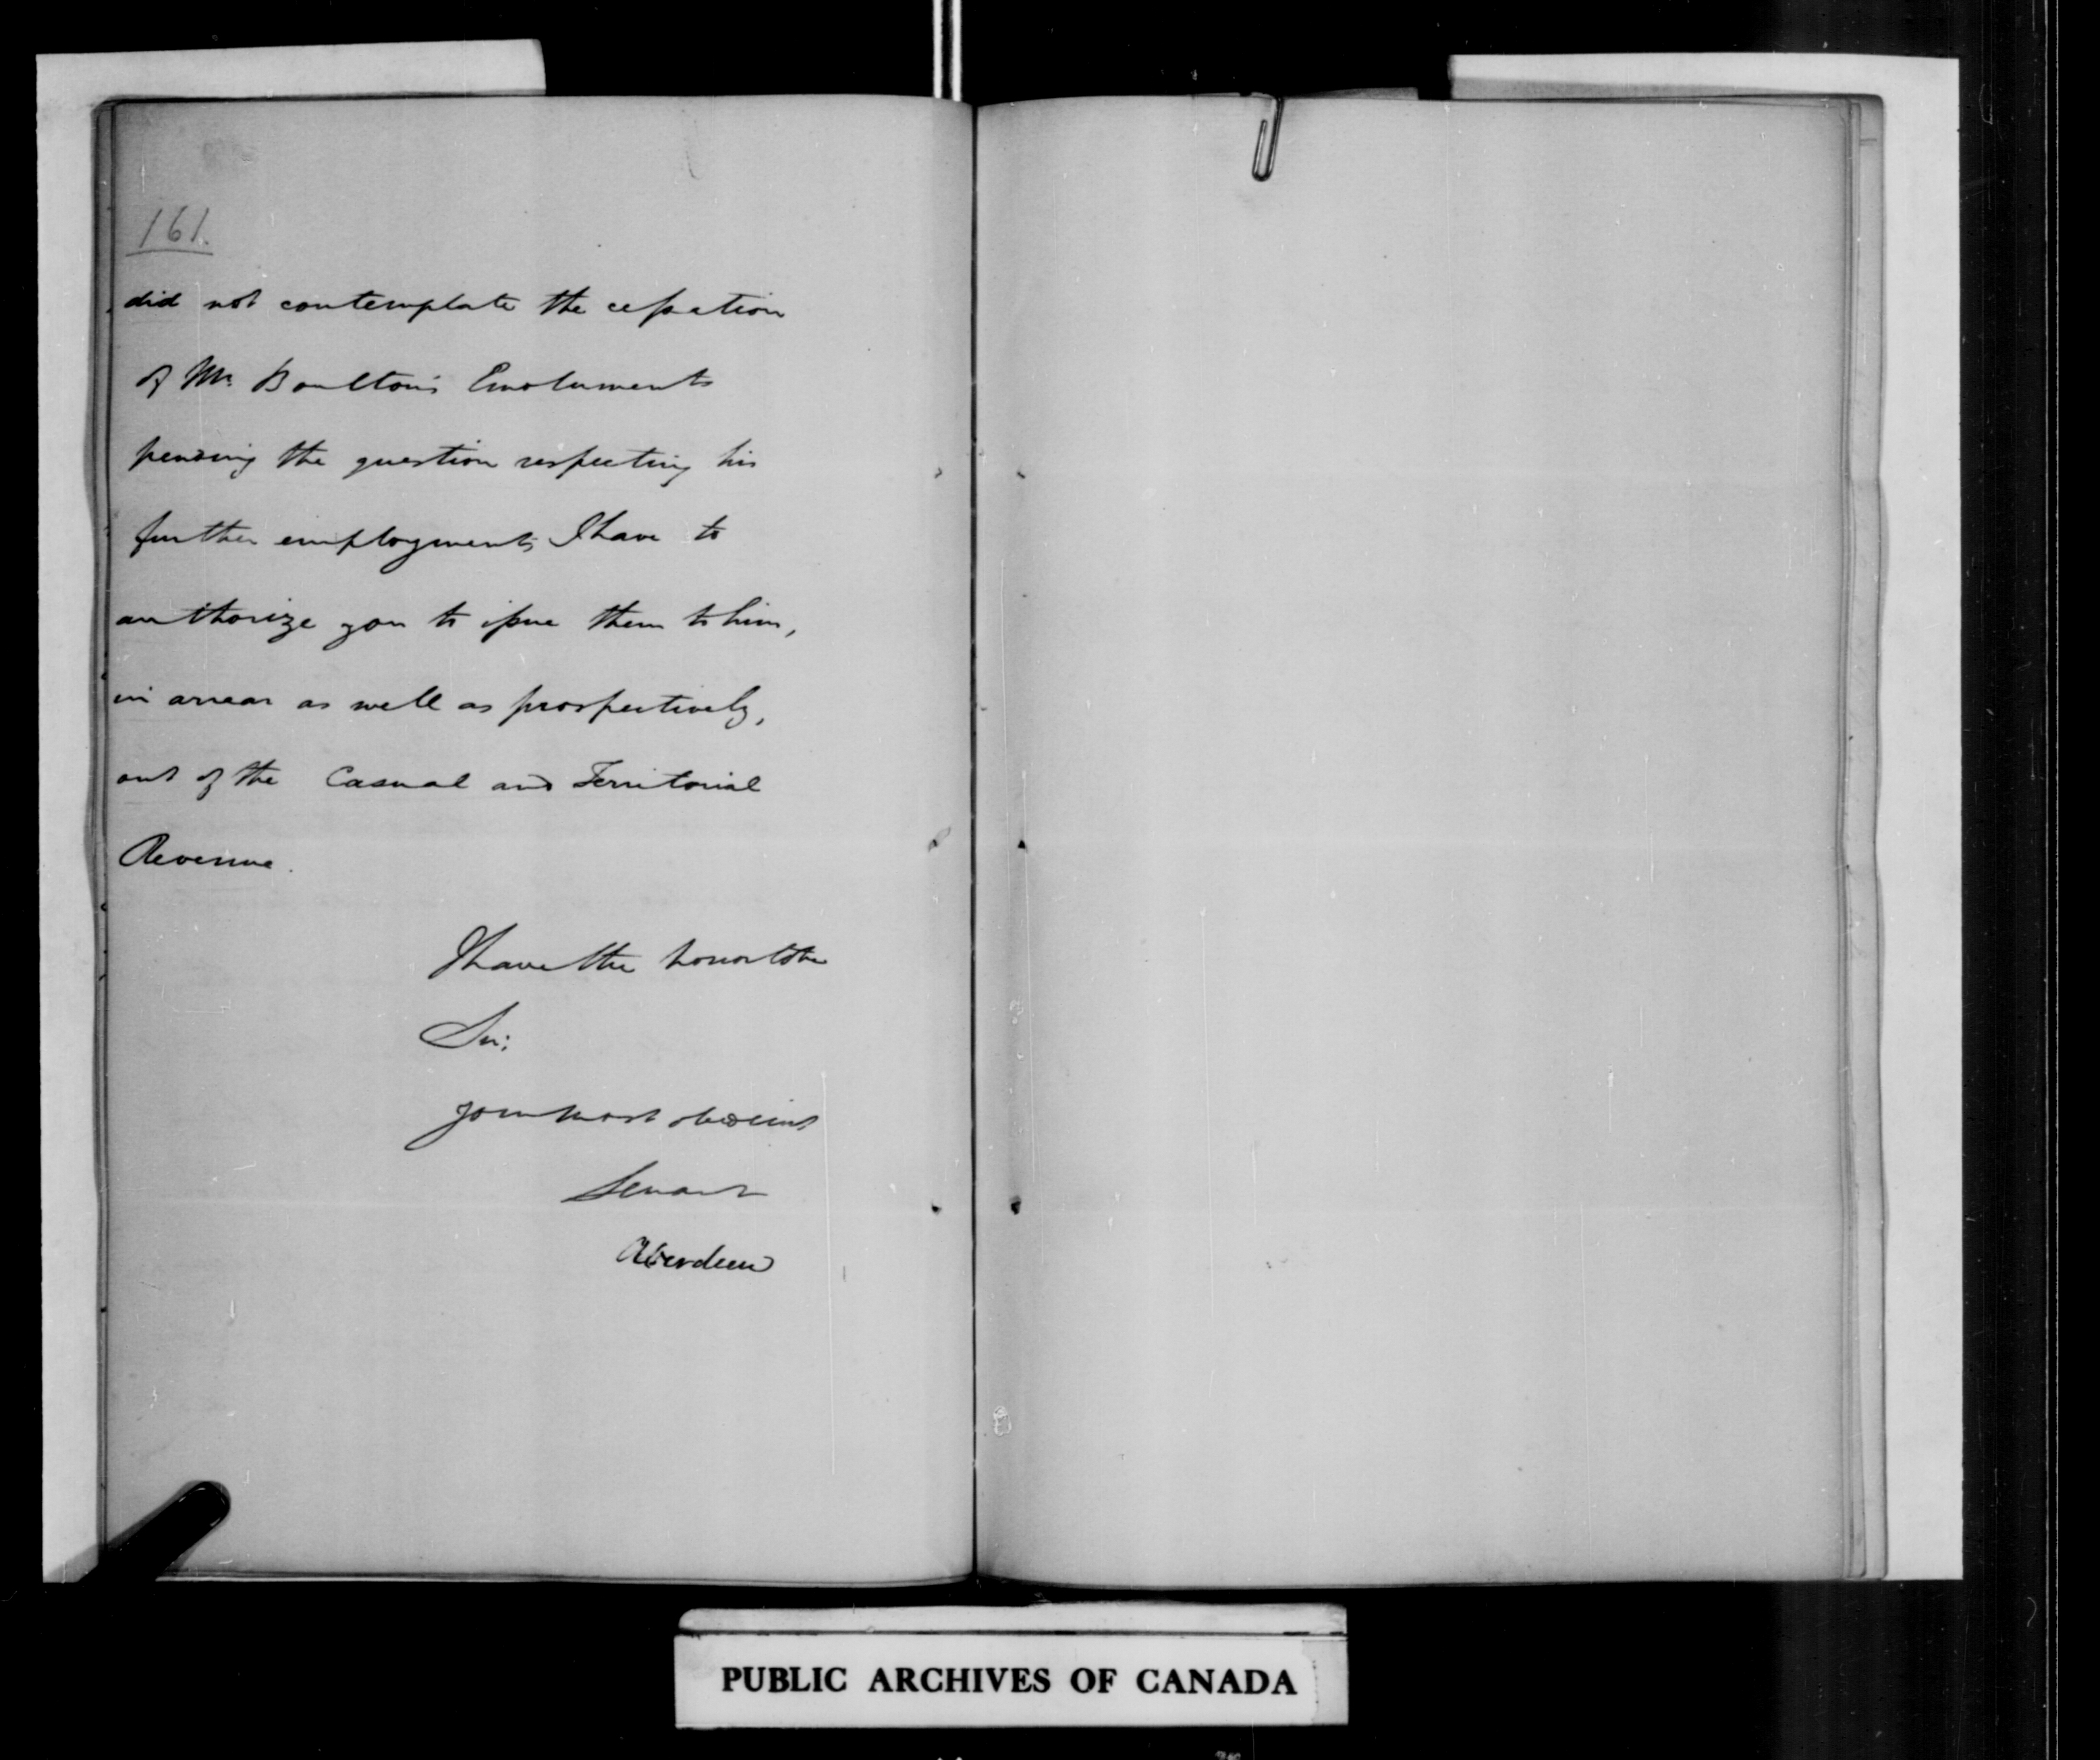 161.
did not contemplate the cessation
of Mr. Boulton's Emoluments
pending the question respecting his
further employment, I have to
authorize you to issue them to him,
in arrear as well as prospectively,
out of the Casual and Territorial
Revenue.
I have the honor to be
Sir;
your most obedient
Servant
Aberdeen
PUBLIC ARCHIVES OF CANADA